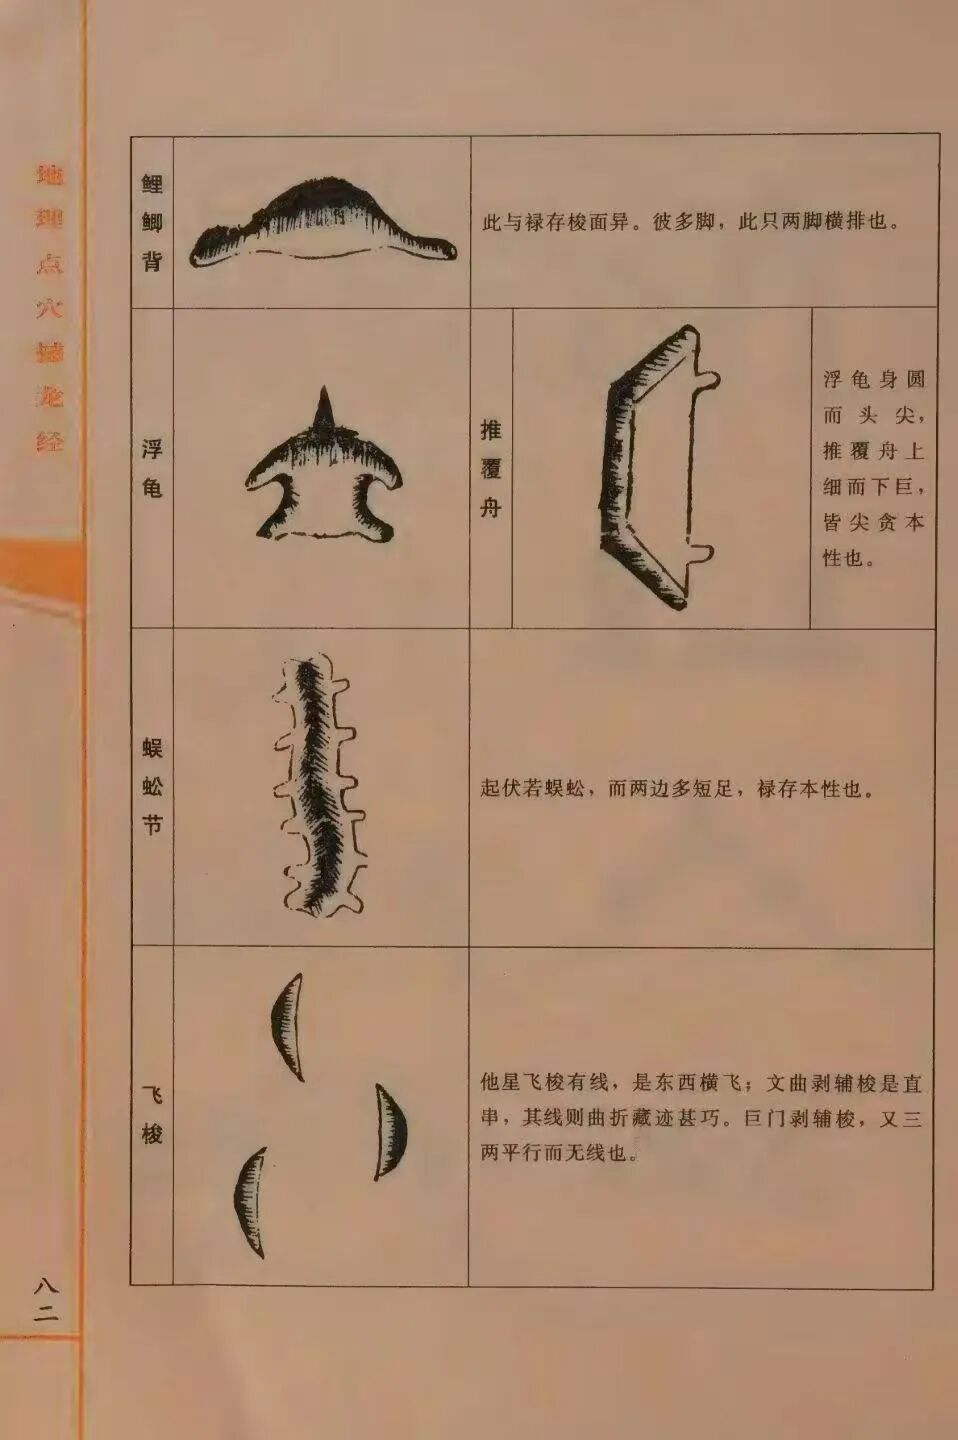 地理点穴撼龙经
鲤鲫背
此与禄存梭面异。彼多脚，此只两脚横排也。
浮龟
推覆舟
浮龟身圆
而头尖，
推覆舟上
细而下巨，
皆尖贪本
性也。
蜈蚣节
起伏若蜈蚣，而两边多短足，禄存本性也。
飞梭
他星飞梭有线，是东西横飞；文曲剥辅梭是直
串，其线则曲折藏迹甚巧。巨门剥辅梭，又三
两平行而无线也。
八二